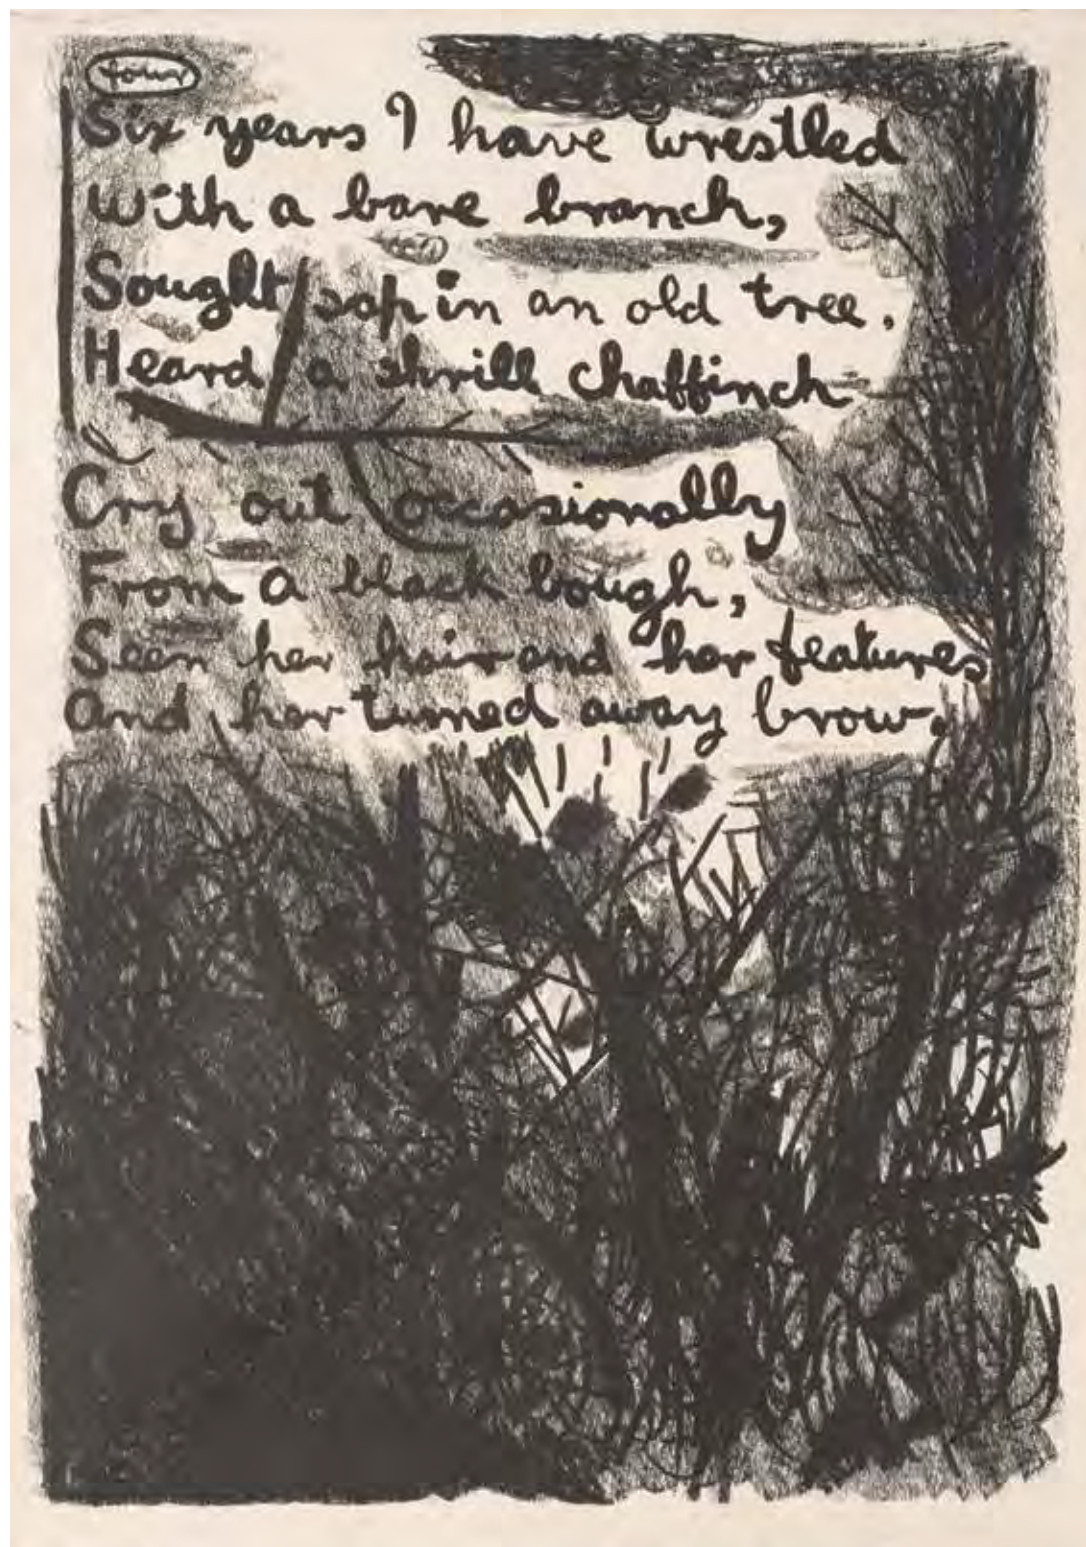 four
Six years I have wrestled
With a bare branch,
Sought sap in an old tree.
Heard a shrill chaffinch
Cry out occasionally
From a black bough,
Seen her hair and her features
And her turned away brow.